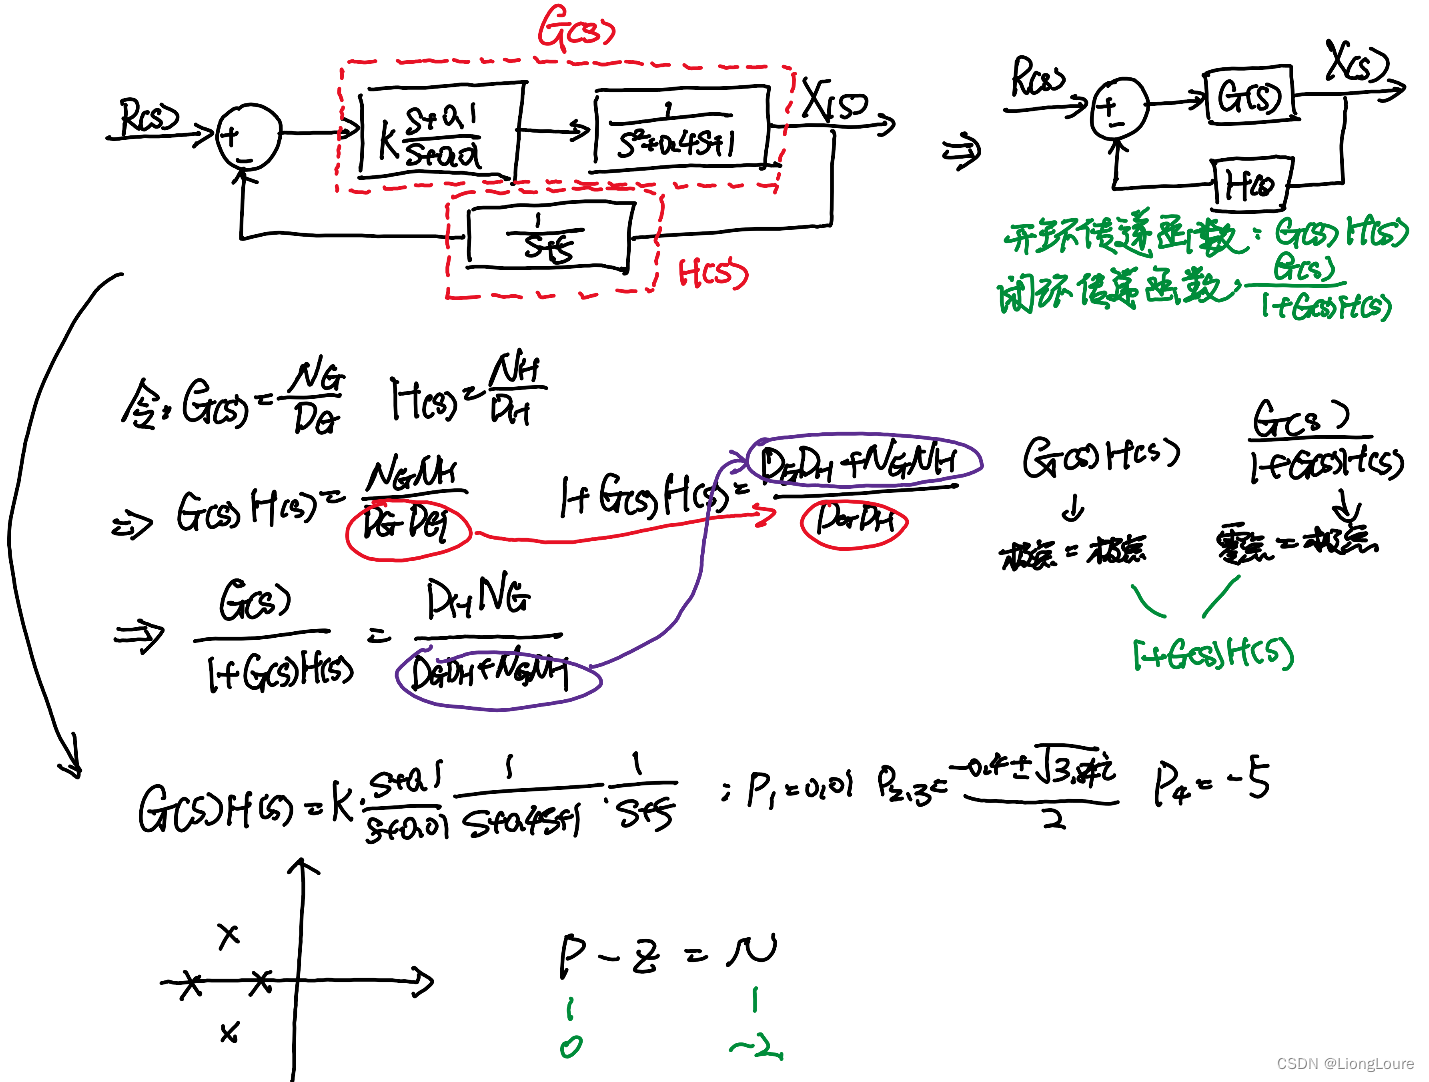 G(s)
R(s) + - K s+0.1/s+0.01 1/s²+0.4s+1 X(s)
1/s+5
H(s)
⇒ R(s) + - G(s) X(s)
H(s)
开环传递函数: G(s)H(s)
闭环传递函数: G(s)/1+G(s)H(s)
令: G(s)=N_G/D_G H(s)=N_H/D_H
⇒ G(s)H(s)=N_GN_H/D_GD_G 1+G(s)H(s)=D_GD_H+N_GN_H/D_GD_H
⇒ G(s)/1+G(s)H(s) = D_HN_G/D_GD_H+N_GN_H
G(s)H(s) G(s)/1+G(s)H(s)
极点=极点 零点=极点
1+G(s)H(s)
G(s)H(s)=K·s+0.1/s+0.01 1/s+0.4s+1·1/s+5 ; P₁=0.01 P₂,₃=-0.4±√3.84i/2 P₄=-5
P-Z=N
0 -2
CSDN @LiongLoure